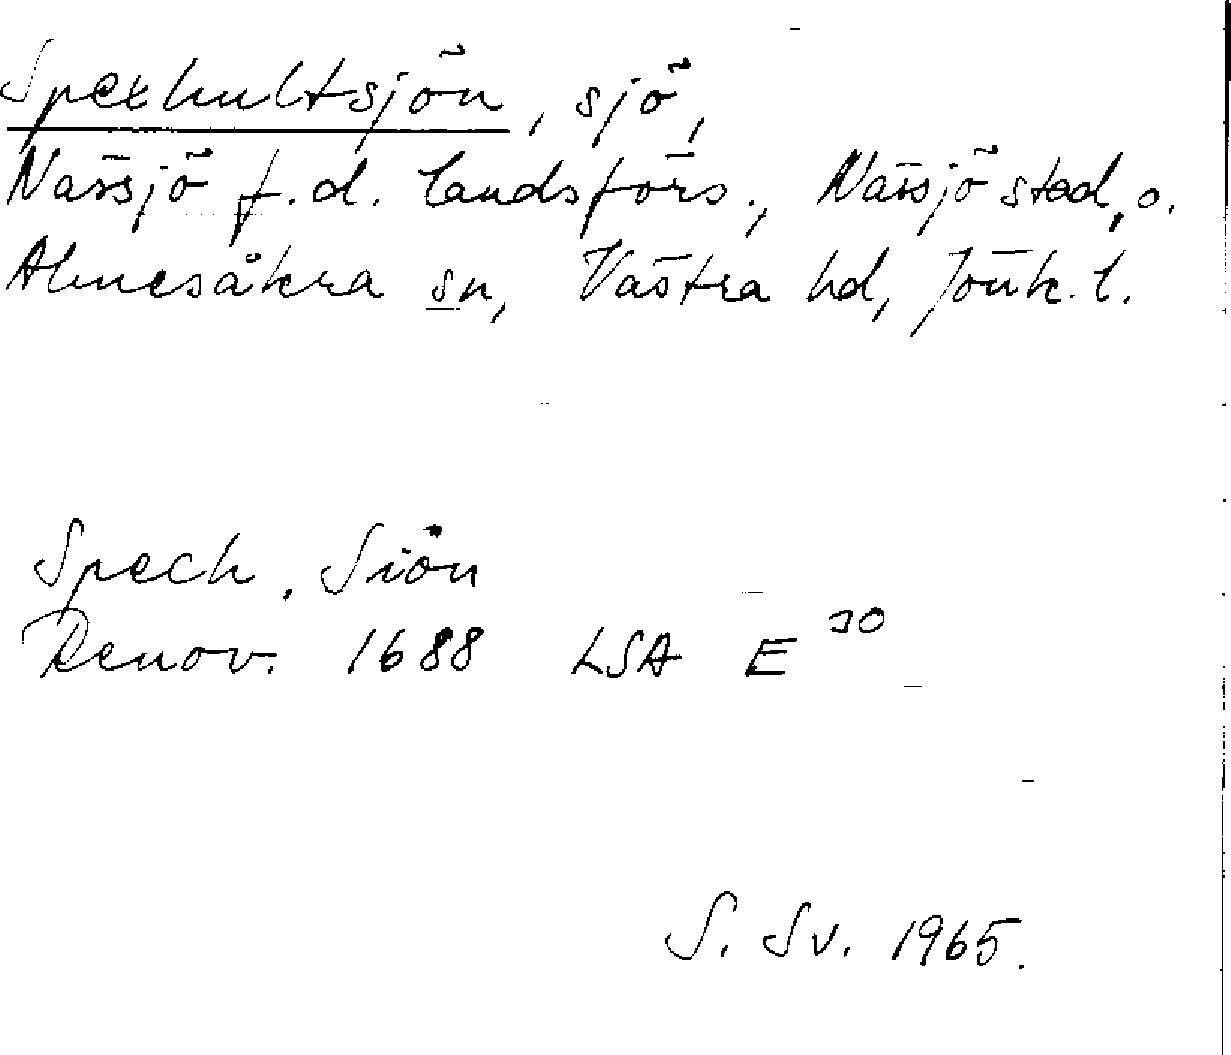 Spexhultsjön, sjö,
Nässjö f.d. landsförs., Nässjö stad, o.
Almesåkra sn, Västra hd, Jönk. l.
Spech. Siön
Renov. 1688 LSA E 30
S. Sv. 1965.